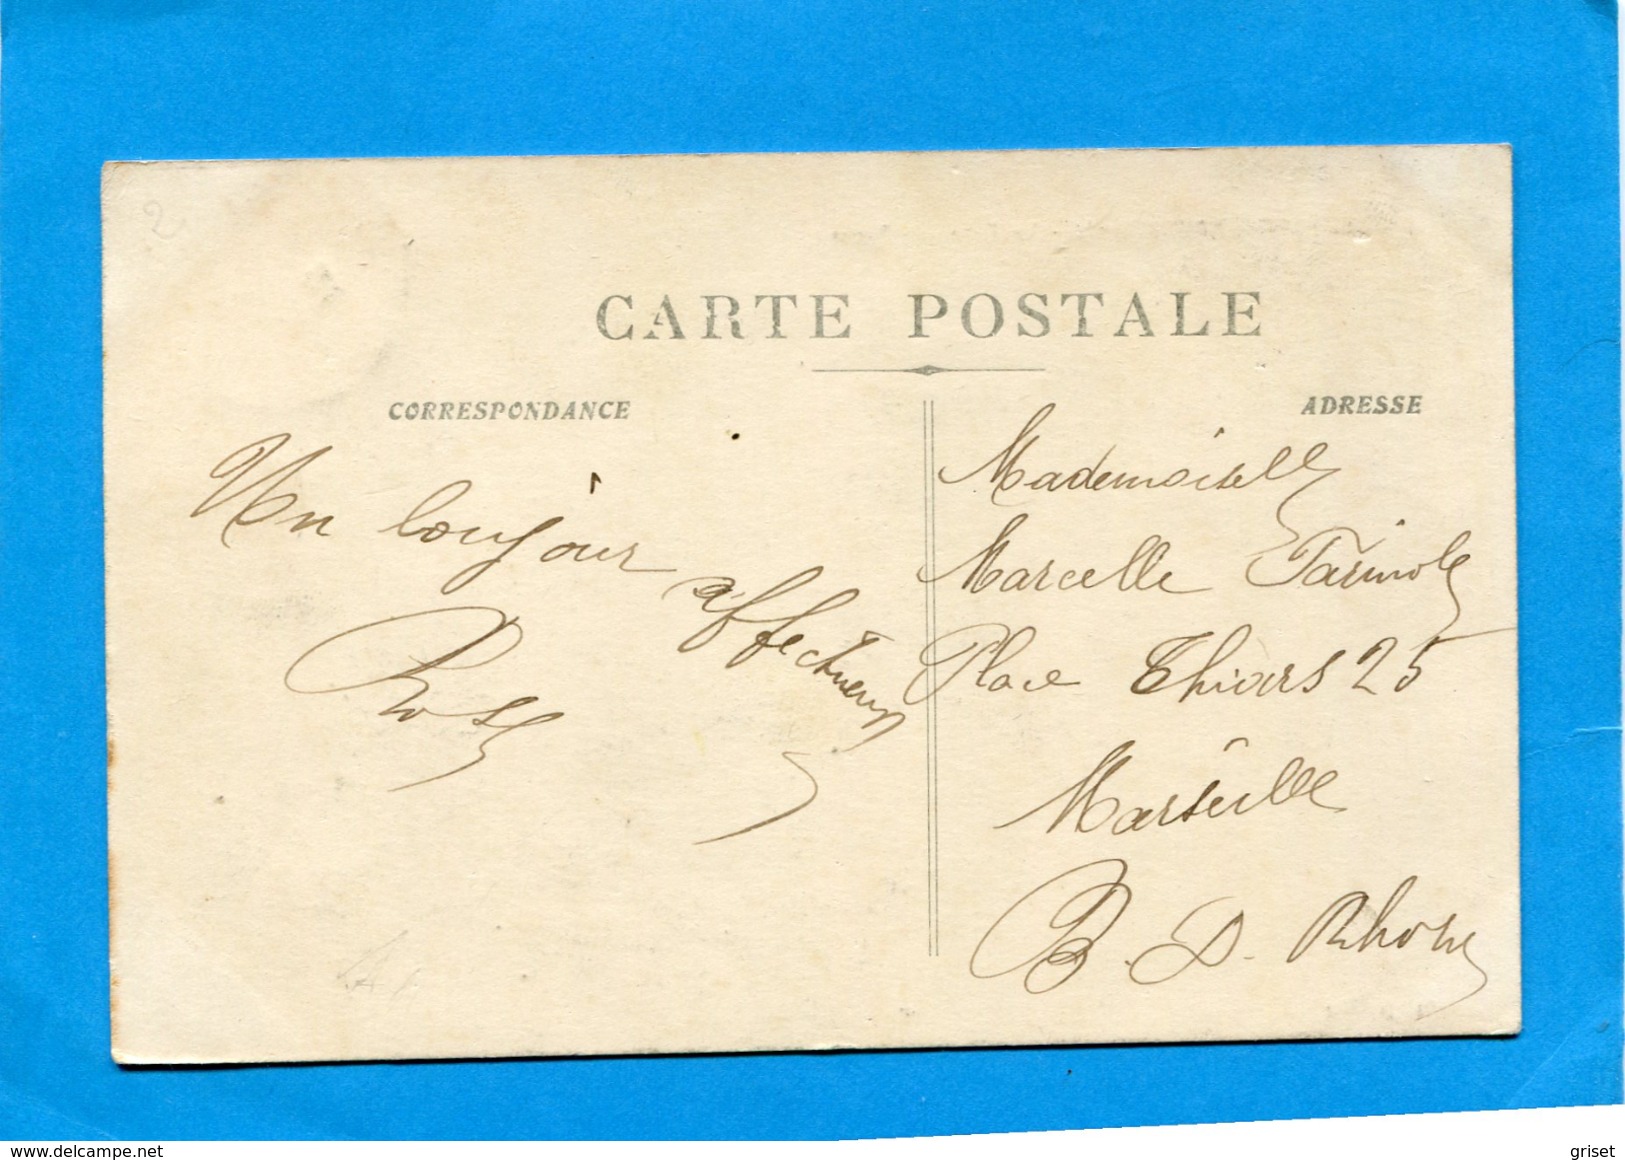 2
CARTE POSTALE
CORRESPONDANCE
ADRESSE
Un bonjour affectueux
Rose
Mademoiselle
Marcelle Farinole
Place Thiars 25
Marseille
B. D. Rhone
delcampe.net
griset